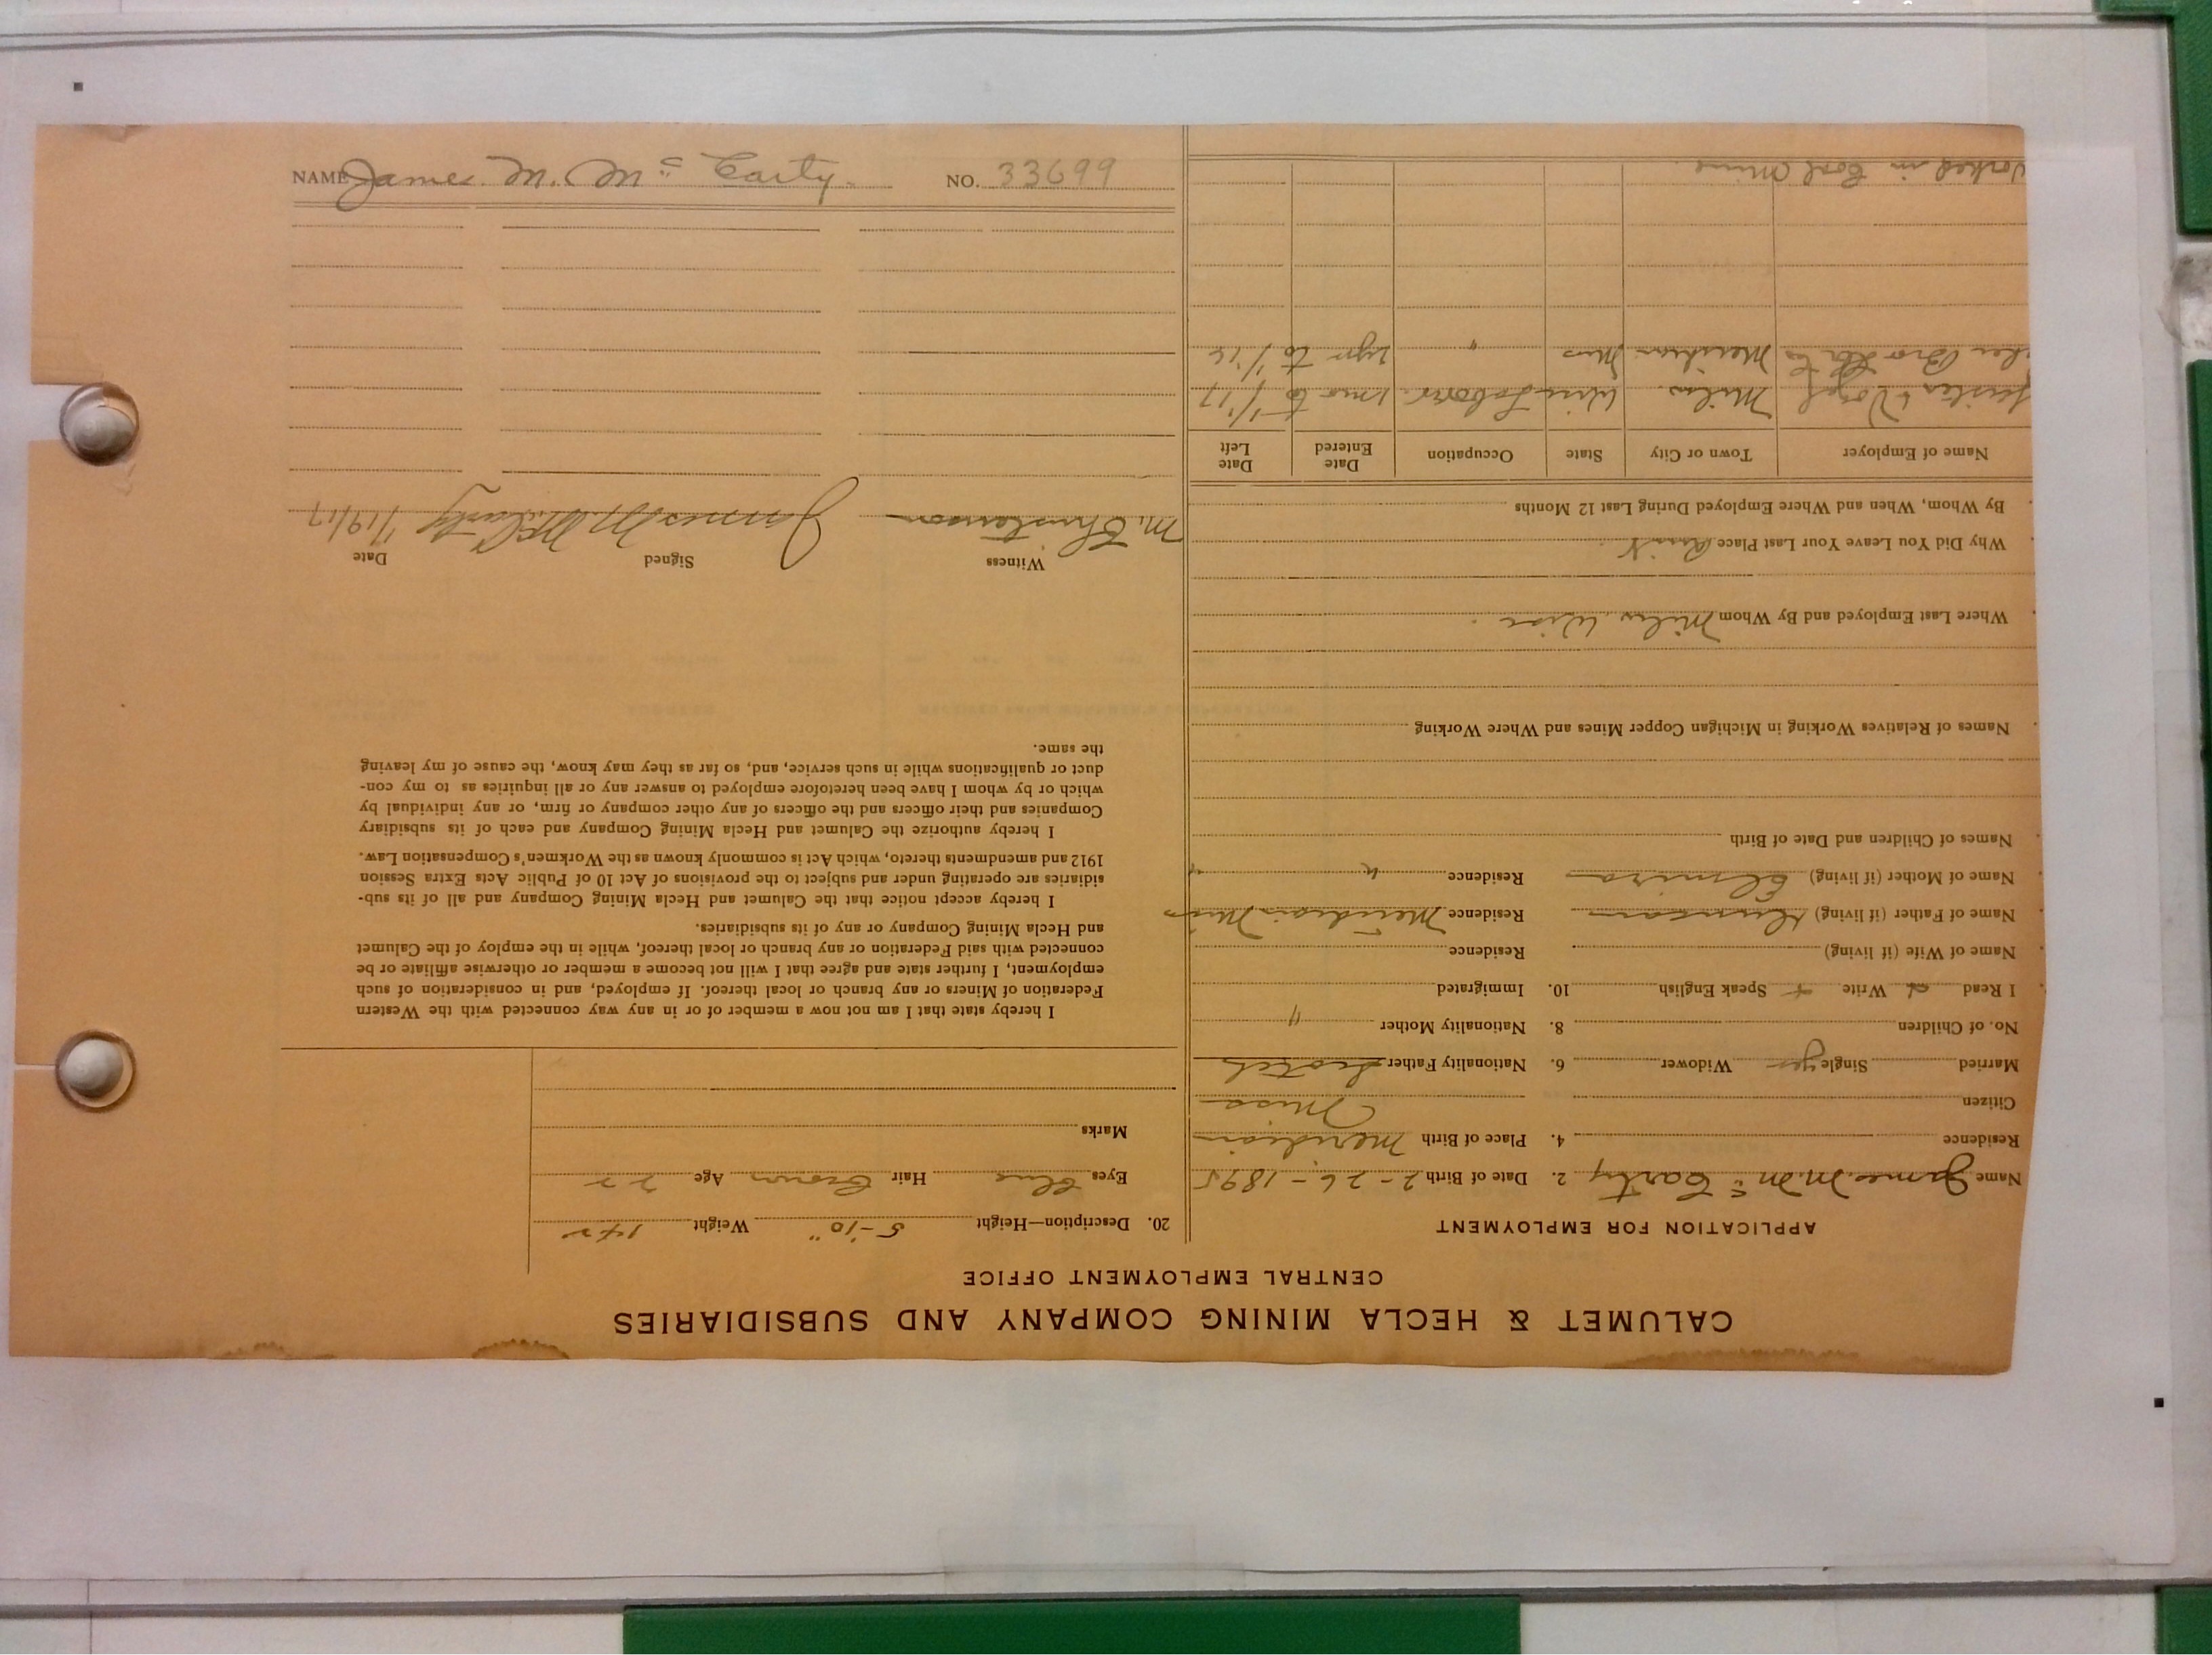 CALUMET & HECLA MINING COMPANY AND SUBSIDIARIES
CENTRAL EMPLOYMENT OFFICE
APPLICATION FOR EMPLOYMENT
Name James M. Mc Carty 2. Date of Birth 2-26-1895
Residence 4. Place of Birth Meridian
Citizen Miss
Married Single yes Widower 6. Nationality Father Scotch
No. of Children 8. Nationality Mother "
I Read Write Speak English 10. Immigrated
Name of Wife (if living) Residence
Name of Father (if living) Residence Meridian Miss
Name of Mother (if living) Elmira Residence " "
Names of Children and Date of Birth
Names of Relatives Working in Michigan Copper Mines and Where Working
Where Last Employed and By Whom Wisc
Why Did You Leave Your Last Place Quit
By Whom, When and Where Employed During Last 12 Months
Name of Employer Town or City State Occupation Date Entered Date Left
Vogel Wisc Labor 1 mo to 1/17
Bro Meridian Miss " 2 yr to 1/16
worked in Coal Mine
20. Description—Height 5-10" Weight 142
Eyes Blue Hair Brown Age 22
Marks
I hereby state that I am not now a member of or in any way connected with the Western
Federation of Miners or any branch or local thereof. If employed, and in consideration of such
employment, I further state and agree that I will not become a member or otherwise affiliate or be
connected with said Federation or any branch or local thereof, while in the employ of the Calumet
and Hecla Mining Company or any of its subsidiaries.
I hereby accept notice that the Calumet and Hecla Mining Company and all of its sub-
sidiaries are operating under and subject to the provisions of Act 10 of Public Acts Extra Session
1912 and amendments thereto, which Act is commonly known as the Workmen's Compensation Law.
I hereby authorize the Calumet and Hecla Mining Company and each of its subsidiary
Companies and their officers and the officers of any other company or firm, or any individual by
which or by whom I have been heretofore employed to answer any or all inquiries as to my con-
duct or qualifications while in such service, and, so far as they may know, the cause of my leaving
the same.
Witness Signed Date
M. Christenson James M. McCarty 1/19/17
NAME James. M. Mc Carty. NO. 33699